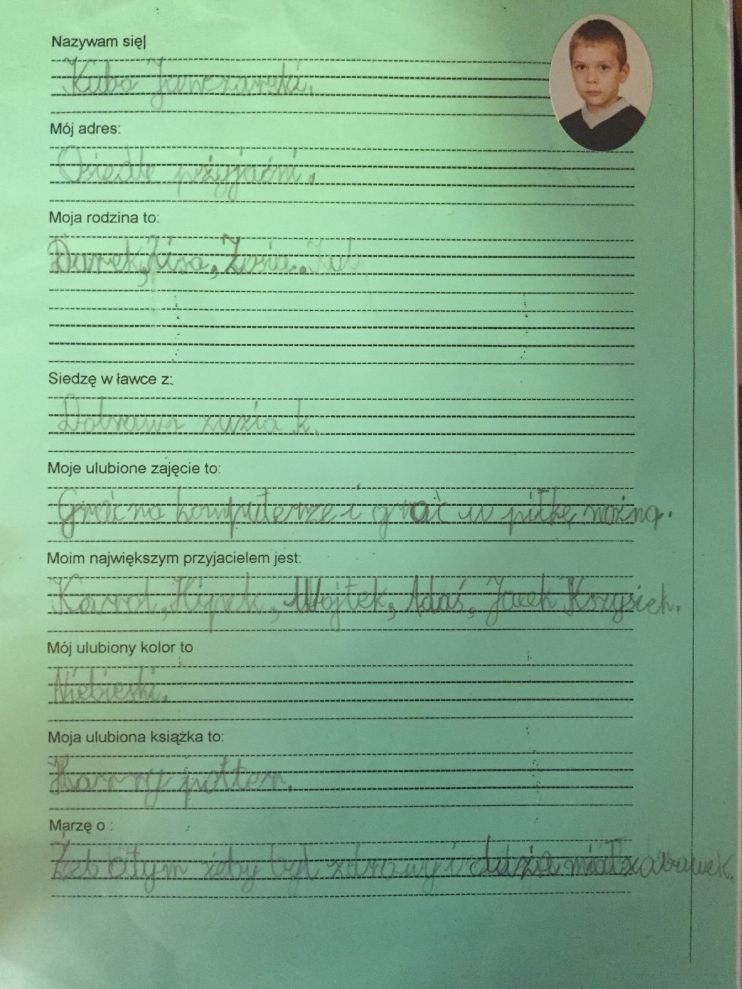 Nazywam się
Kuba Janczarski.
Mój adres:
Osiedle przyjaźni.
Moja rodzina to:
Darek, Liza, Zosia.
Siedzę w ławce z:
Dobrawa zuzia k.
Moje ulubione zajęcie to:
Grać na komputerze i grać w piłkę nożną.
Moim największym przyjacielem jest:
Karol, Hipek, Wojtek, Adaś, Jacek Krzysiek.
Mój ulubiony kolor to
Niebieski.
Moja ulubiona książka to:
Harry potter.
Marzę o :
Żeb o tym żeby był zdrowy i dużo miał zabawek.